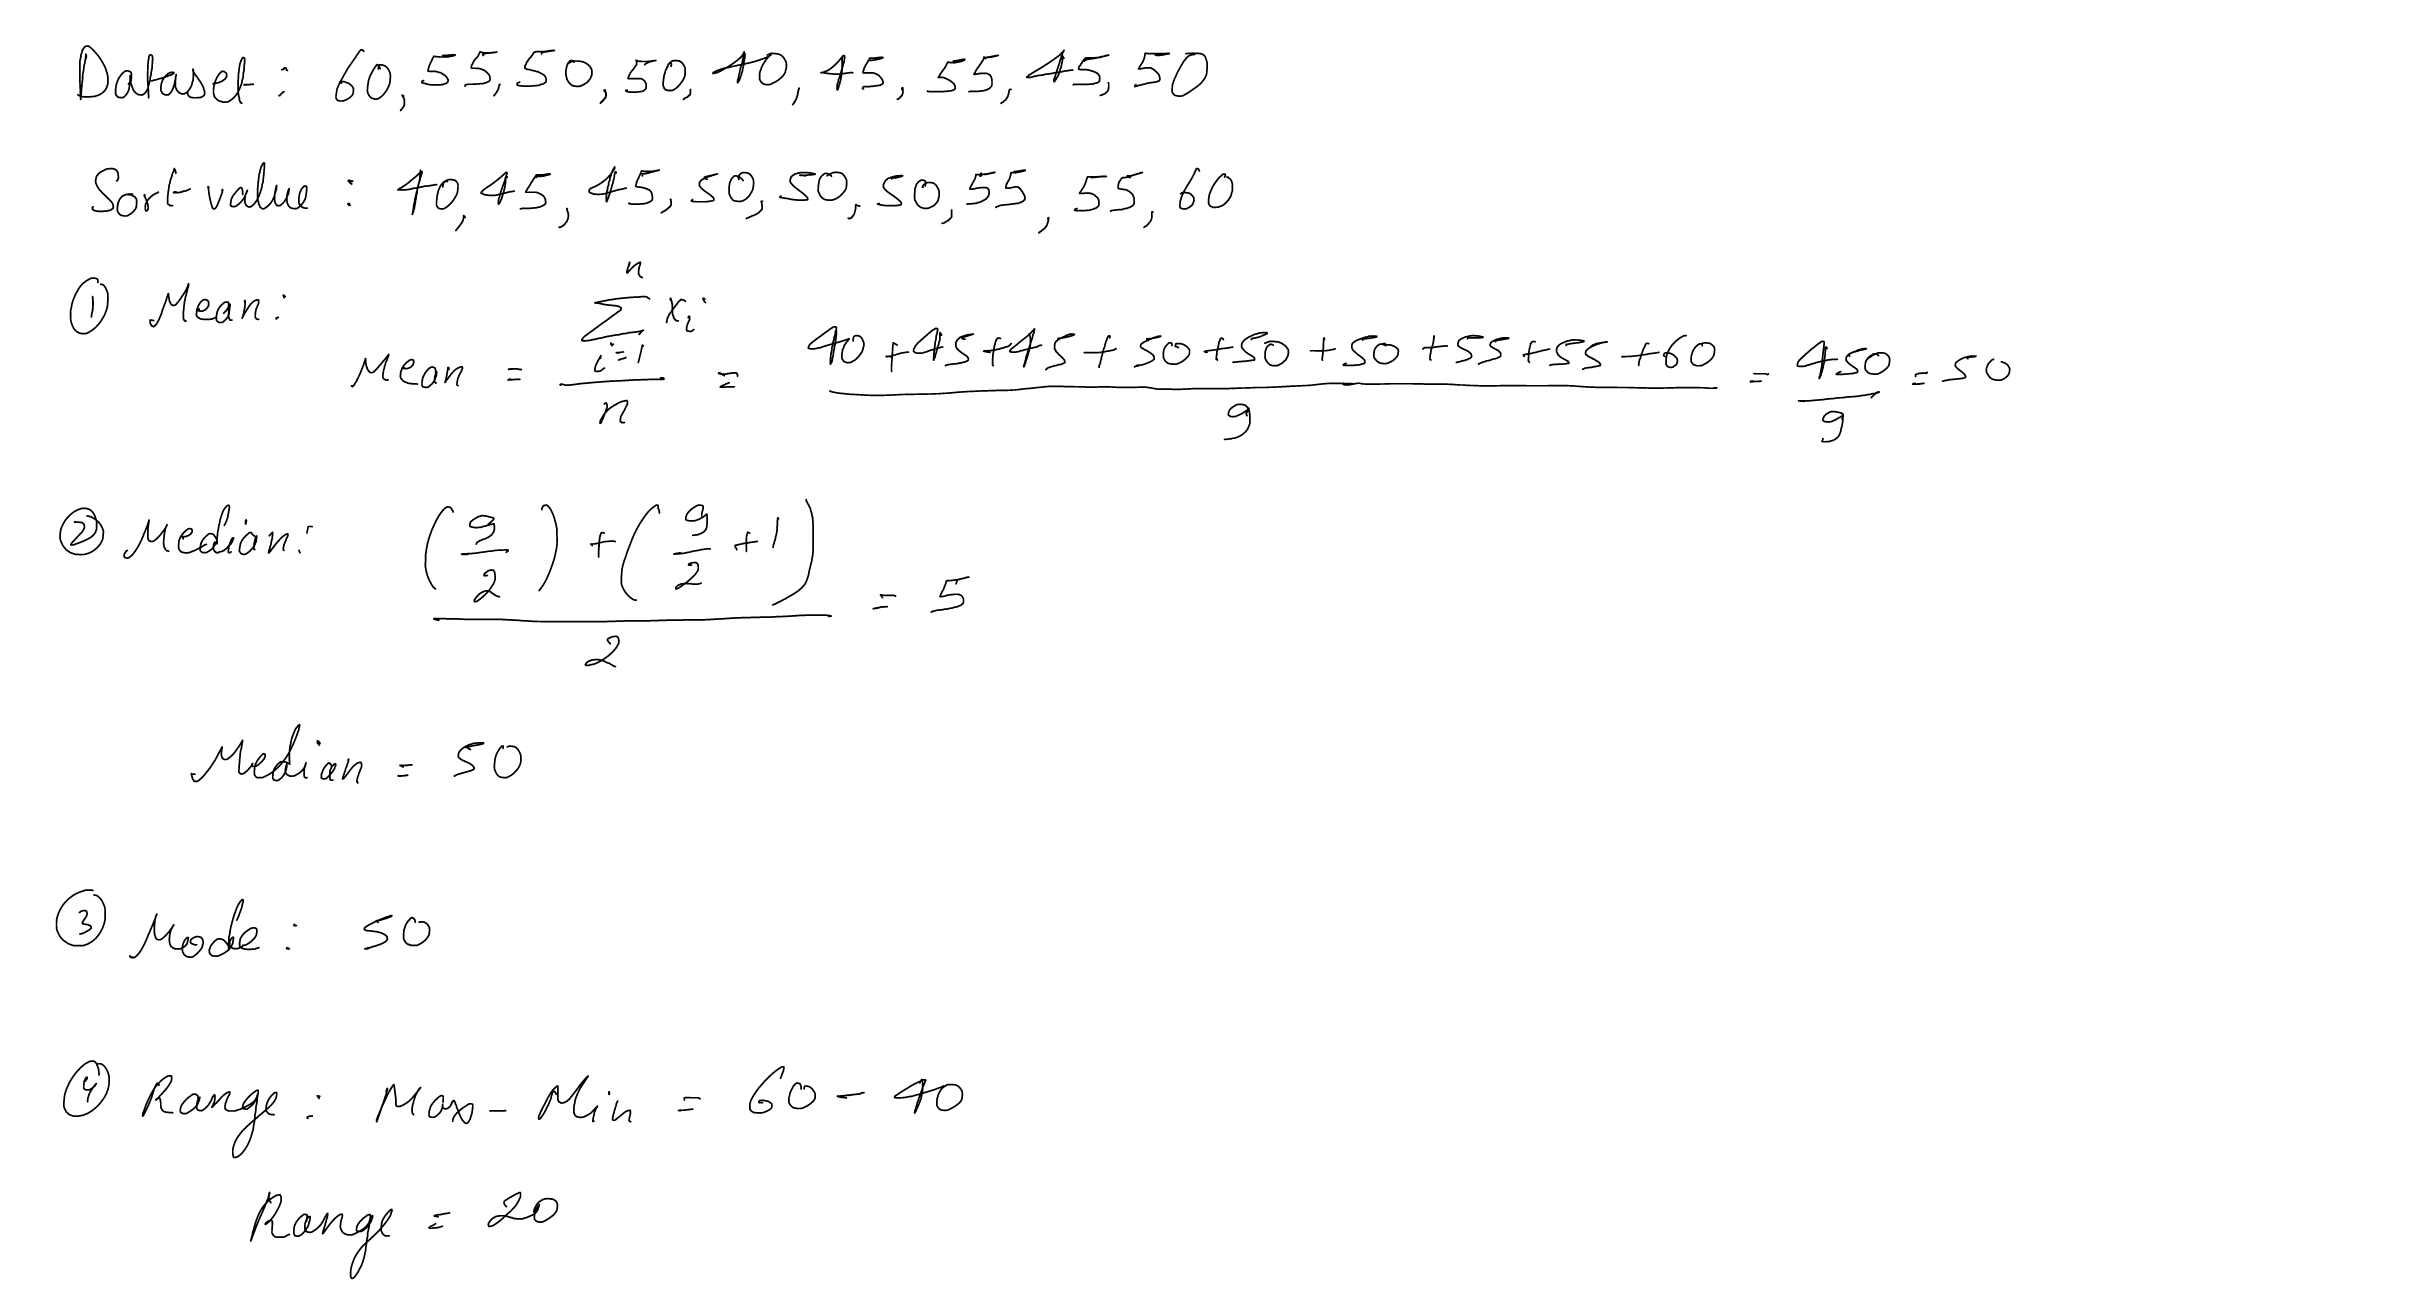 Dataset : 60, 55, 50, 50, 40, 45, 55, 45, 50
Sort value : 40, 45, 45, 50, 50, 50, 55, 55, 60
① Mean :
Mean = \frac{\sum_{i=1}^{n} x_i}{n} = \frac{40+45+45+50+50+50+55+55+60}{9} = \frac{450}{9} = 50
② Median : \frac{(\frac{9}{2}) + (\frac{9}{2} + 1)}{2} = 5
Median = 50
③ Mode : 50
④ Range : Max - Min = 60 - 40
Range = 20